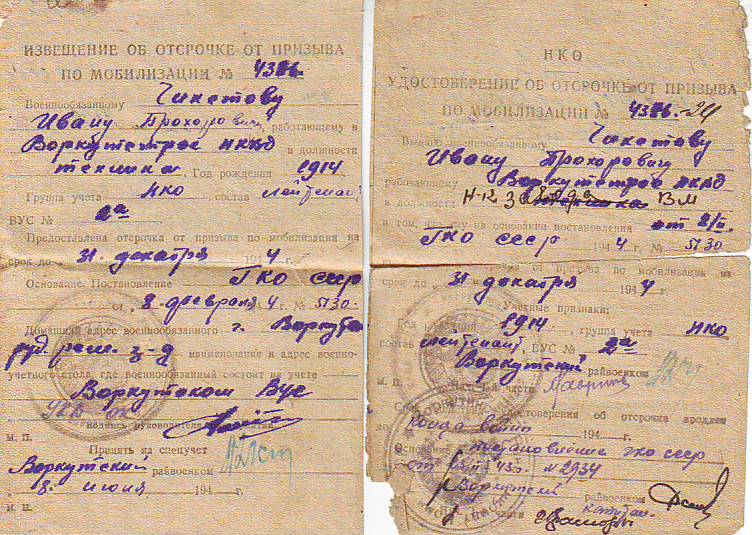 ИЗВЕЩЕНИЕ ОБ ОТСРОЧКЕ ОТ ПРИЗЫВА
ПО МОБИЛИЗАЦИИ №
Военнообязанному Чикетову
Ивану Прохоровичу, работающему в
Воркутстрое НКВД в должности
техника. Год рождения 1914
Группа учета НКО, состав лейтенант
ВУС № 2а
Предоставлена отсрочка от призыва по мобилизации на
срок до 31 декабря 194 4
Основание. Постановление ГКО СССР
от 8 февраля 4 г. № 5130.
Домашний адрес военнообязанного г. Воркута
наименование и адрес военно-
учетного стола, где военнообязанный состоит на учете
Воркутском ВУС
подпись руководителя
М. П.
Принять на спецучет
Воркутский райвоенком
8 июня 194 г.
М. П.
НКО
УДОСТОВЕРЕНИЕ ОБ ОТСРОЧКЕ ОТ ПРИЗЫВА
ПО МОБИЛИЗАЦИИ №
Выдано военнообязанному Чикетову
Ивану Прохоровичу
работающему Воркутстрое НКВД
в должности
в том, что ему на основании постановления от 8/II
ГКО СССР 194 4 г. № 5130
отсрочка от призыва по мобилизации на
срок до 31 декабря 194 4
Учетные признаки:
Год рождения 1914, группа учета НКО
состав лейтенант, ВУС № 2а
Воркутский райвоенком
М. П. части
Удостоверения об отсрочке продлен
до конца войны 194 г.
Основание постановление ГКО СССР
№ 2934
Воркутский райвоенком
части капитан